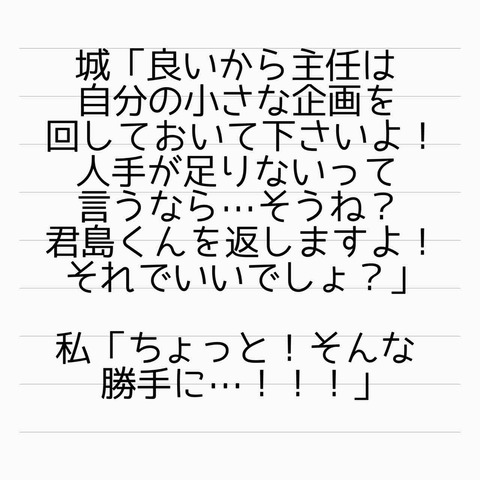 城「良いから主任は
自分の小さな企画を
回しておいて下さいよ！
人手が足りないって
言うなら…そうね？
君島くんを返しますよ！
それでいいでしょ？」
私「ちょっと！そんな
勝手に…！！！」